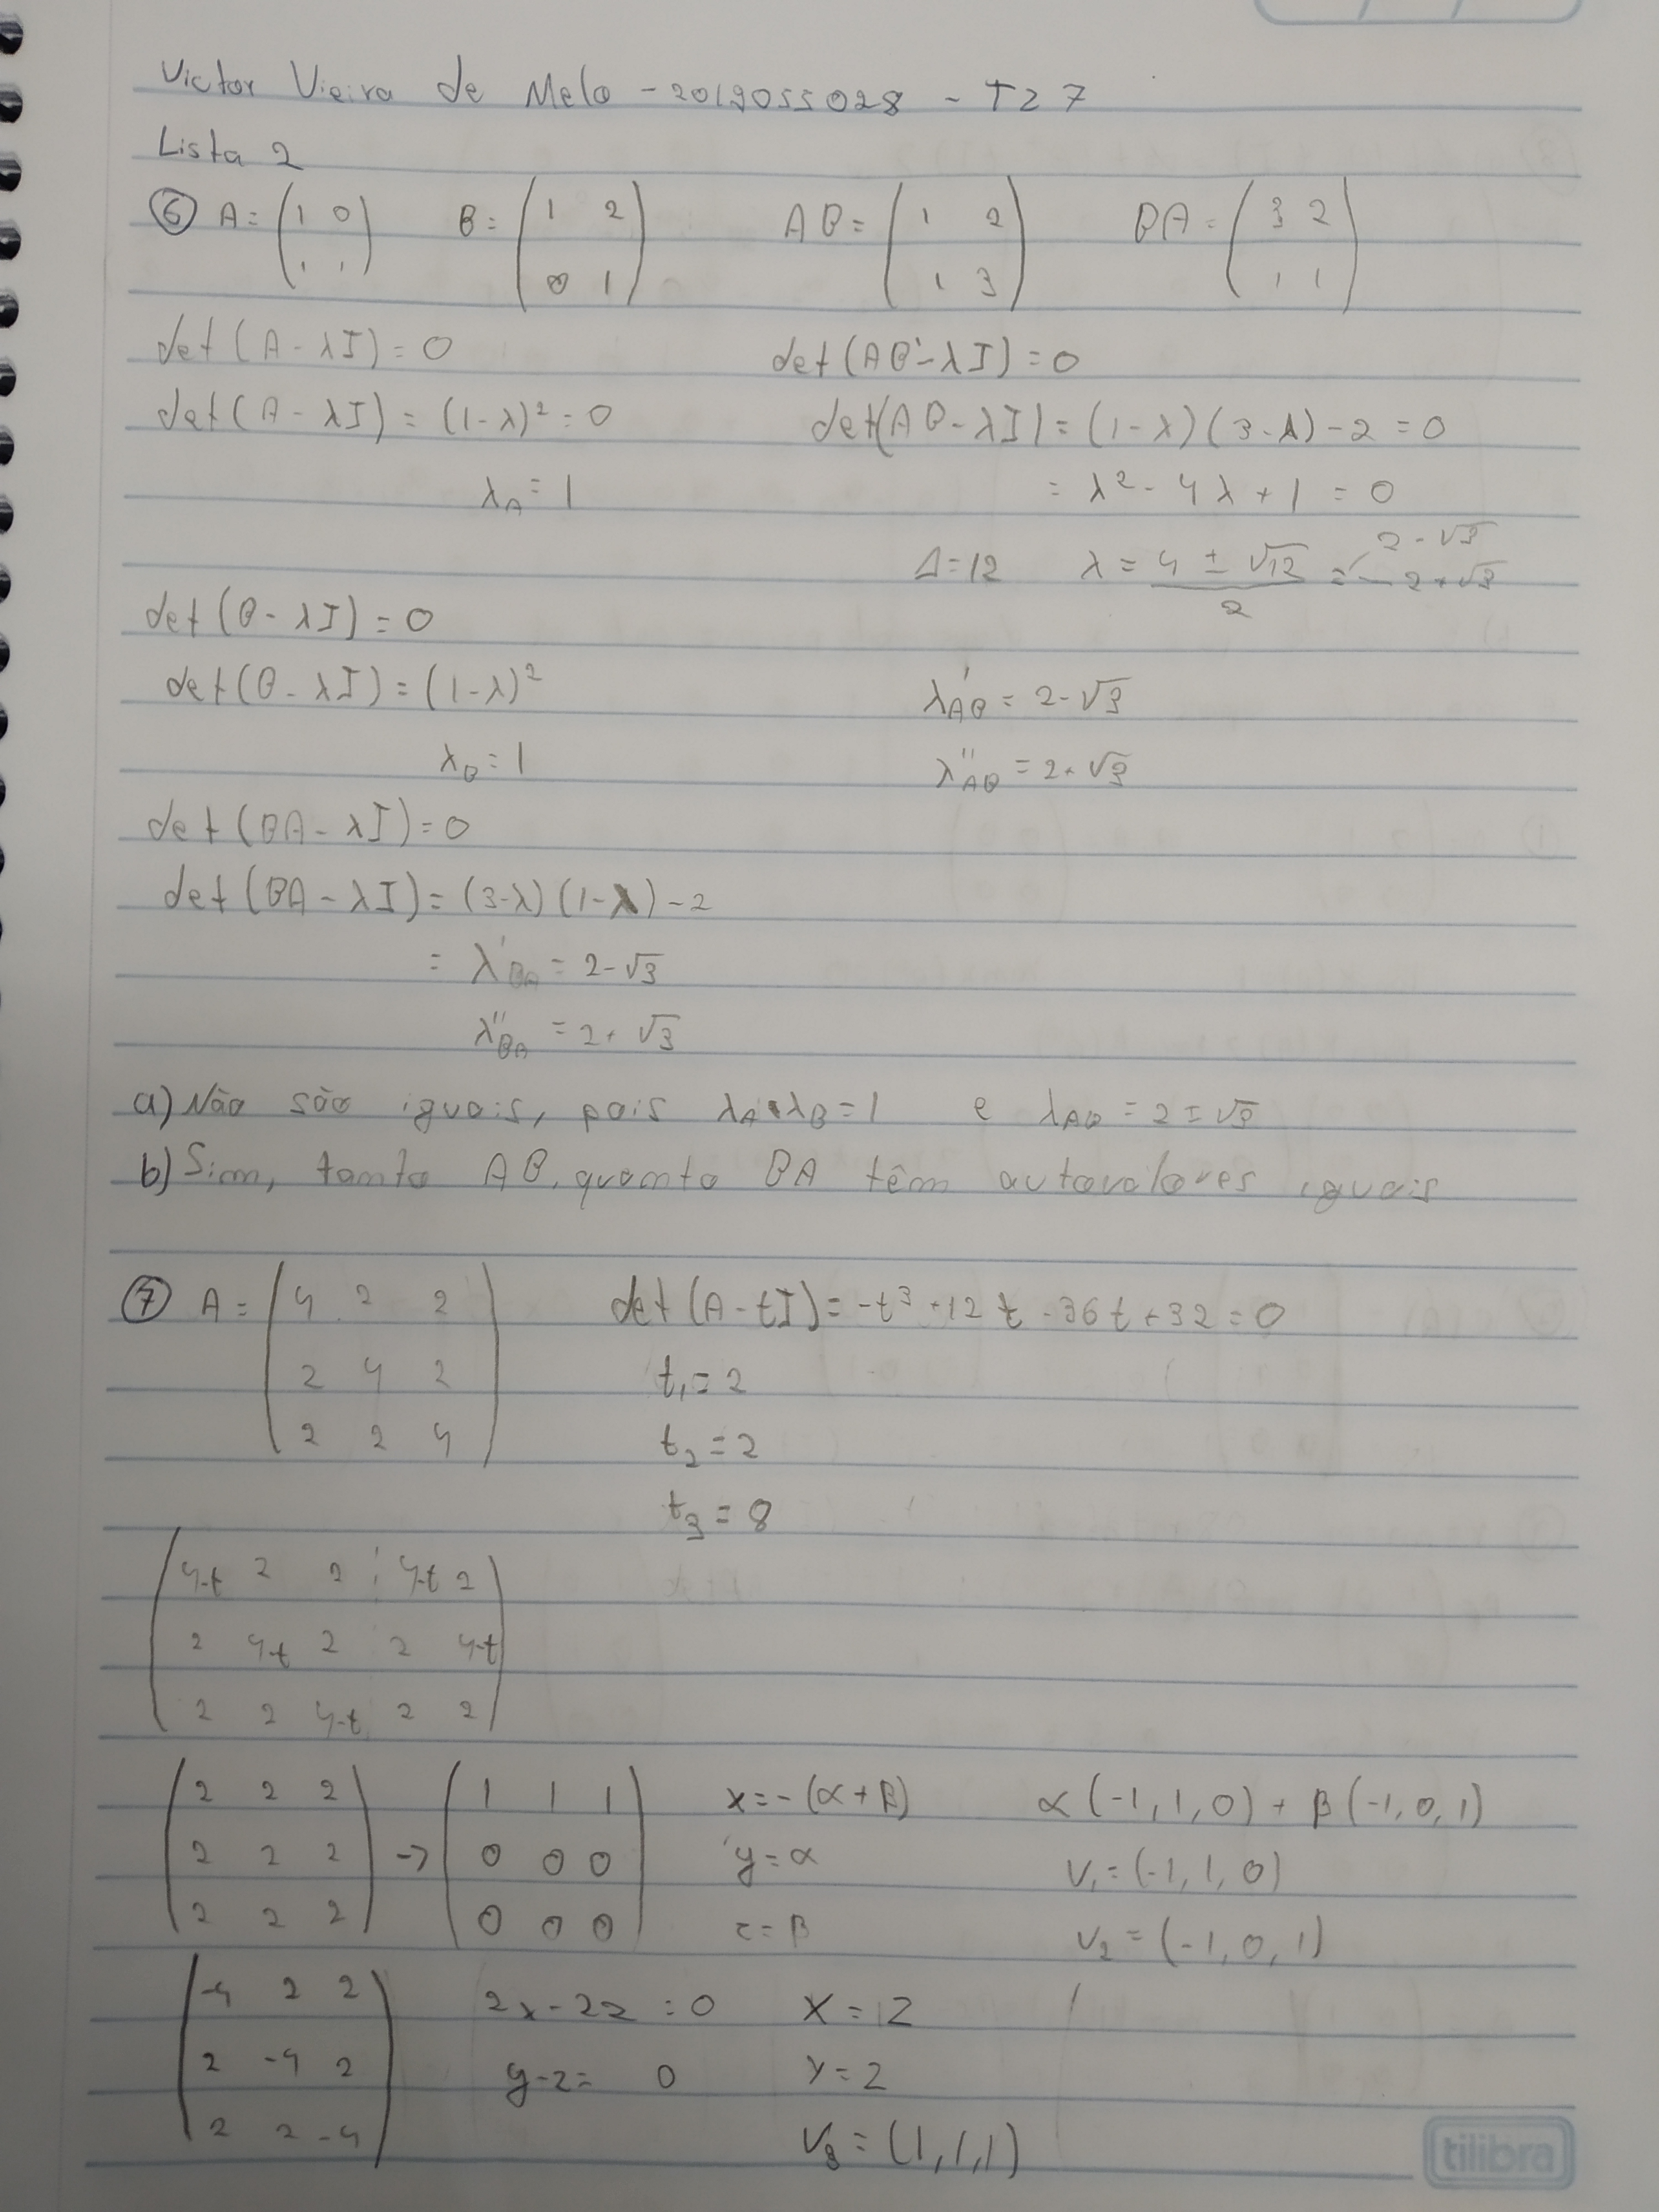 Victor Vieira de Melo - 2019055028 - T27
Lista 2
⑥ A = (1 0; 1 1) B = (1 2; 0 1) AB = (1 2; 1 3) BA = (3 2; 1 1)
det(A - λI) = 0 det(AB - λI) = 0
det(A - λI) = (1-λ)² = 0 det(AB - λI) = (1-λ)(3-λ) - 2 = 0
λA = 1 = λ² - 4λ + 1 = 0
Δ = 12 λ = (4 ± √12)/2 = 2 - √3
2 + √3
det(B - λI) = 0
det(B - λI) = (1-λ)² λ'AB = 2 - √3
λB = 1 λ''AB = 2 + √3
det(BA - λI) = 0
det(BA - λI) = (3-λ)(1-λ) - 2
= λ'BA = 2 - √3
λ''BA = 2 + √3
a) Não são iguais, pois λA • λB = 1 e λAB = 2 ± √3
b) Sim, tanto AB, quanto BA têm autovalores iguais
⑦ A = (4 2 2; 2 4 2; 2 2 4) det(A - tI) = -t³ + 12t - 36t + 32 = 0
t₁ = 2
t₂ = 2
t₃ = 8
4-t 2 2 4-t 2
2 4-t 2 2 4-t
2 2 4-t 2 2
(2 2 2; 2 2 2; 2 2 2) → (1 1 1; 0 0 0; 0 0 0) x = -(α + β) α(-1, 1, 0) + β(-1, 0, 1)
y = α V₁ = (-1, 1, 0)
z = β V₂ = (-1, 0, 1)
(-4 2 2; 2 -4 2; 2 2 -4) 2x - 2z = 0 X = 12
y - z = 0 Y = 2
V₃ = (1, 1, 1)
tilibra